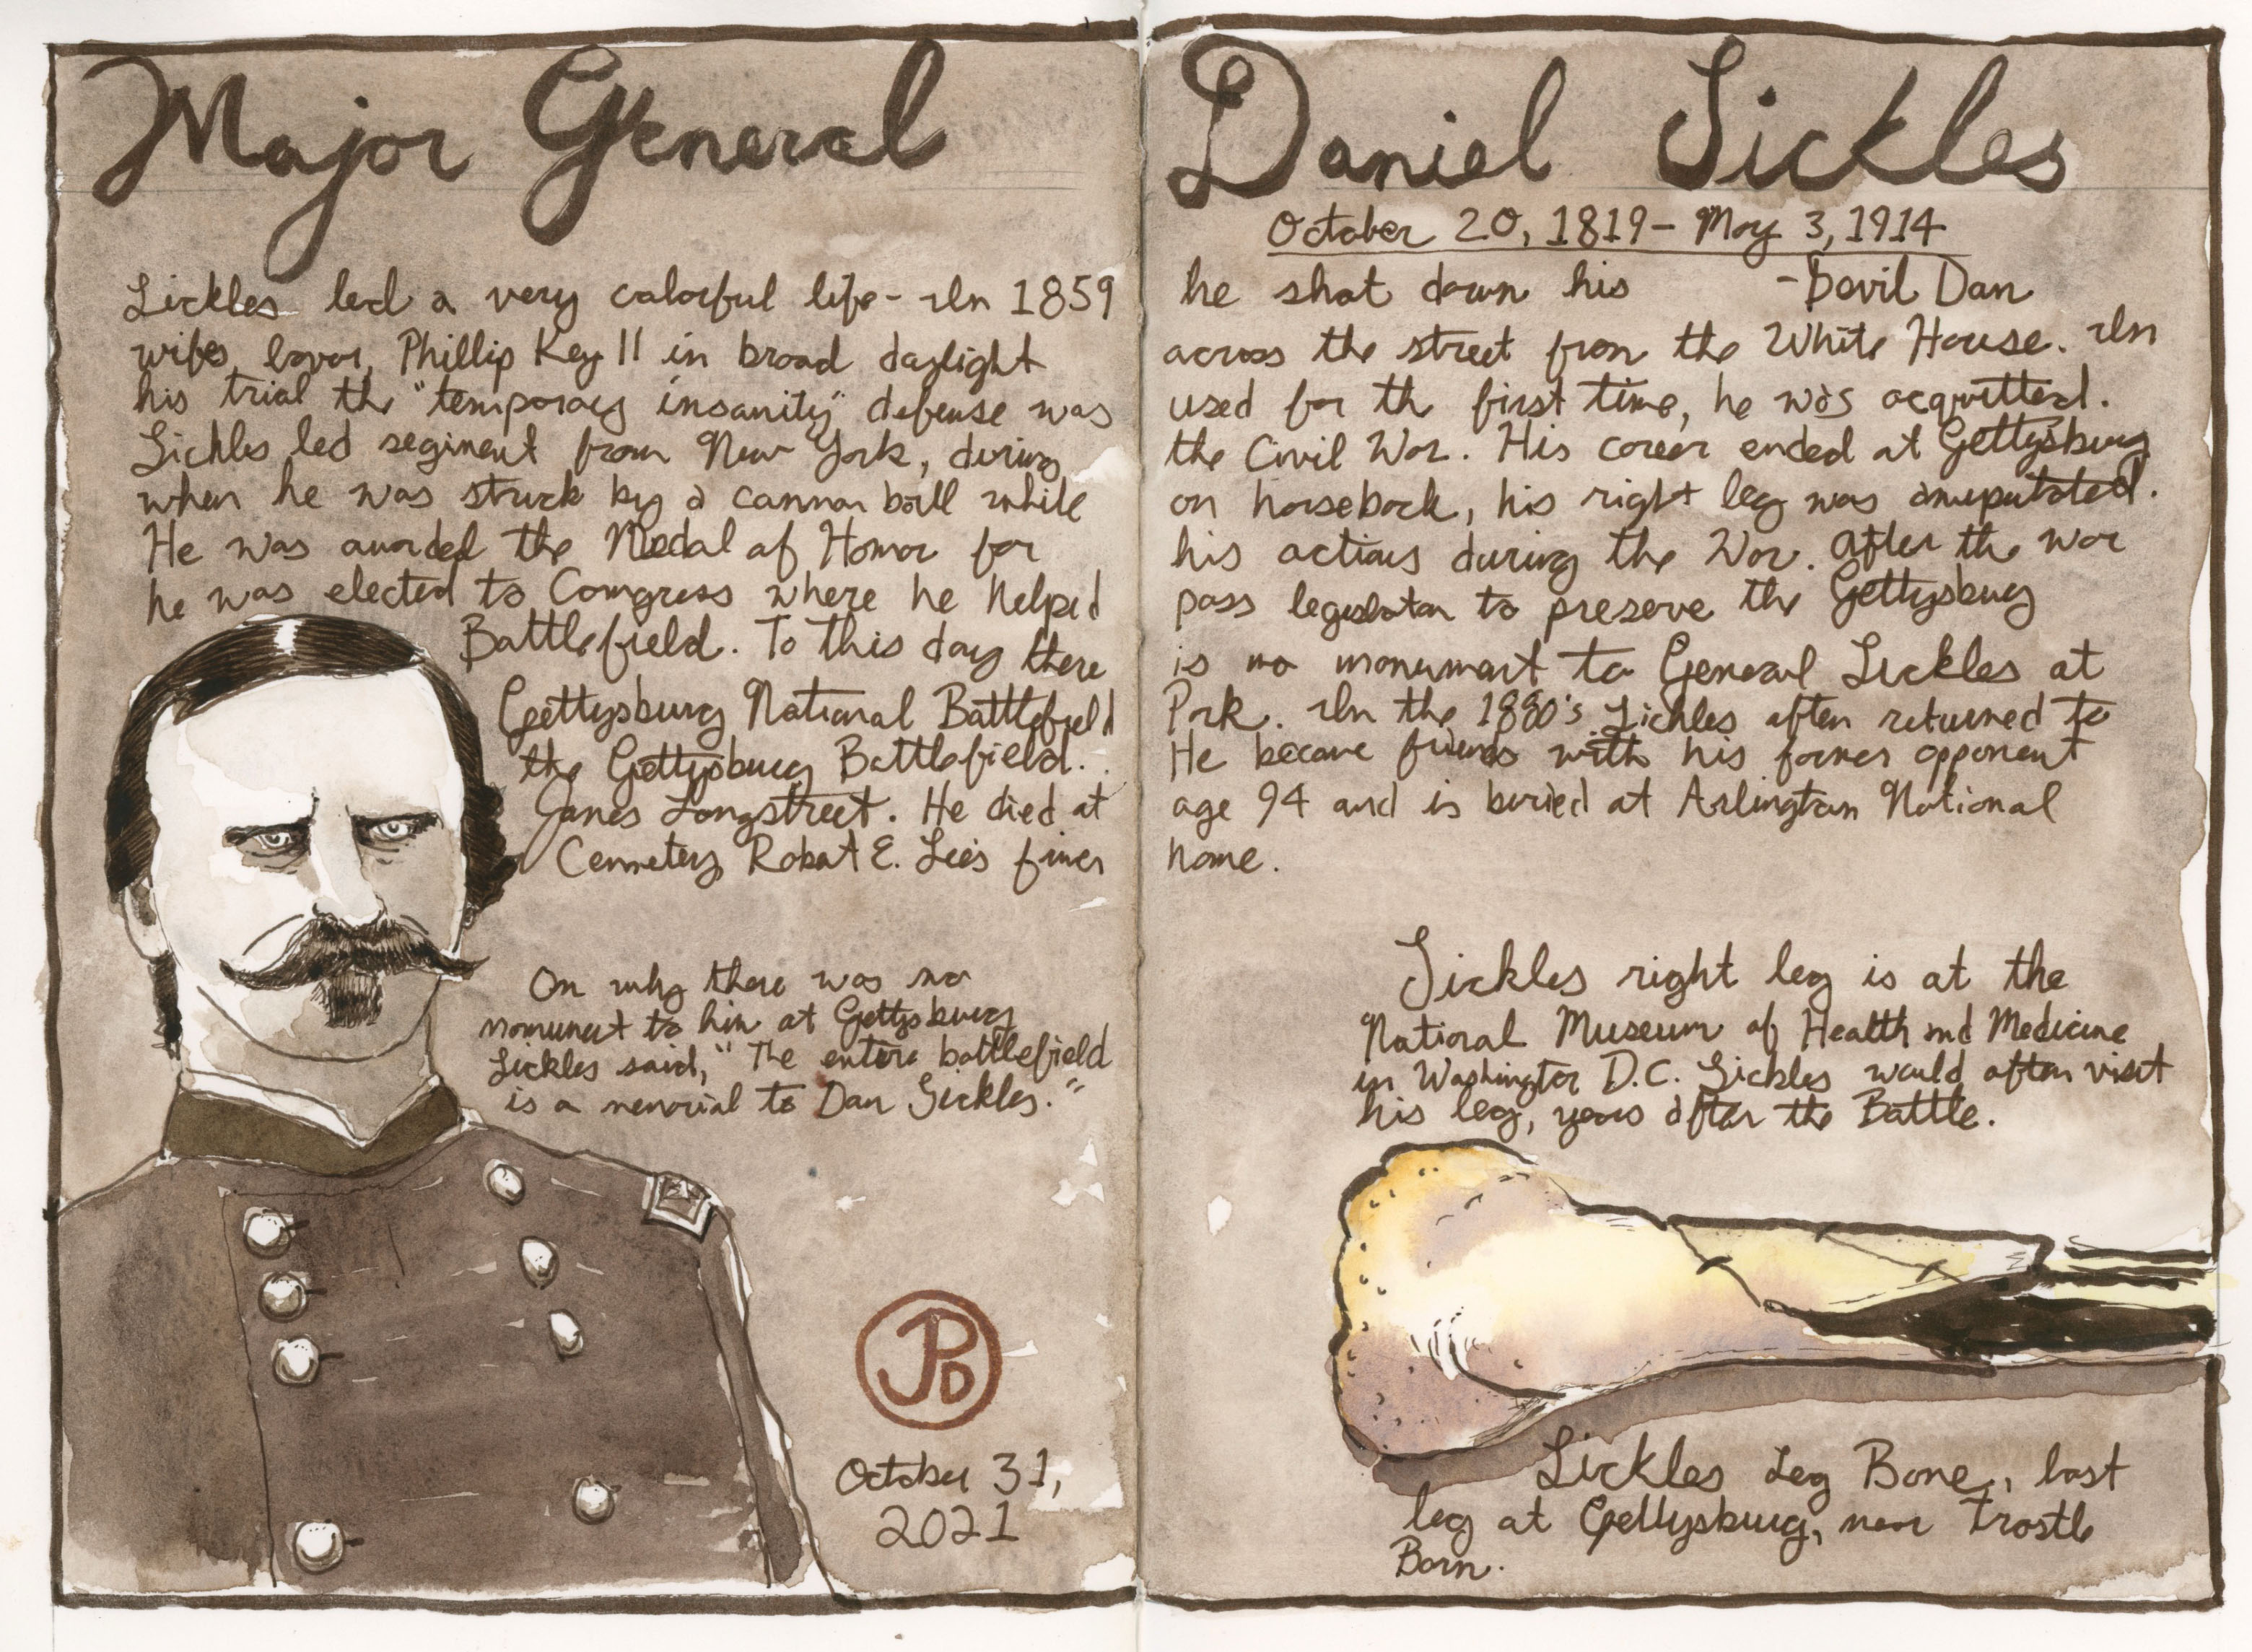 Major General Daniel Sickles
October 20, 1819 - May 3, 1914
Sickles led a very colorful life - In 1859 he shot down his - Devil Dan
wifes lover, Phillip Key II in broad daylight across the street from the White House. In
his trial the "temporary insanity" defense was used for th first time, he was acquitted.
Sickles led regiment from New York, during the Civil War. His career ended at Gettysburg
when he was struck by a cannon ball while on horseback, his right leg was amuputated.
He was awarded the Medal of Honor for his actions during the War. After the war
he was elected to Congress where he helped pass legislation to preserve the Gettysburg
Battlefield. To this day there is no monument to General Sickles at
Gettysburg National Battlefield Park. In the 1880's Sickles often returned to
the Gettysburg Battlefield. He became friends with his former opponent
James Longstreet. He died at age 94 and is buried at Arlington National
Cemetery, Robert E. Lee's former home.
On why there was no
monument to him at Gettysburg
Sickles said, "The entire battlefield
is a memorial to Dan Sickles."
JPD
October 31,
2021
Sickles right leg is at the
National Museum of Health and Medicine
in Washington D.C. Sickles would often visit
his leg, years after the Battle.
Sickles Leg Bone, lost
leg at Gettysburg, near Trostle
Barn.